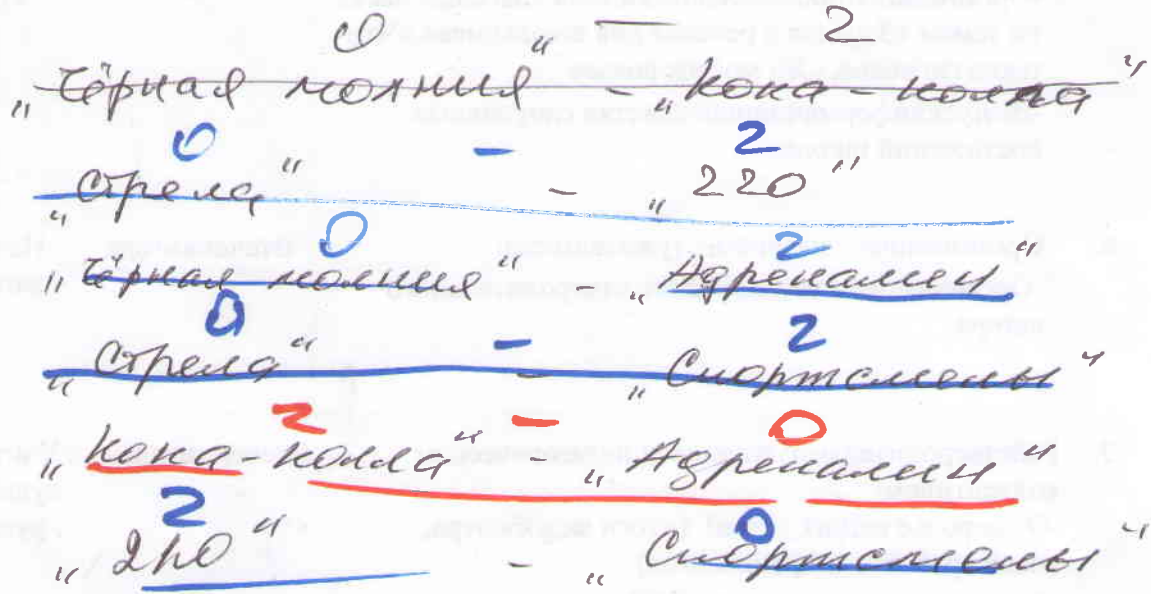 0 — 2
„Чёрная молния“ – „Кока-колла“
0 - 2
„Стрела“ – „220“
0 2
„Чёрная молния“ – „Адреналин“
0 - 2
„Стрела“ – „Спортсмены“
2 - 0
„Кока-колла“ – „Адреналин“
2 0
„220“ – „Спортсмены“